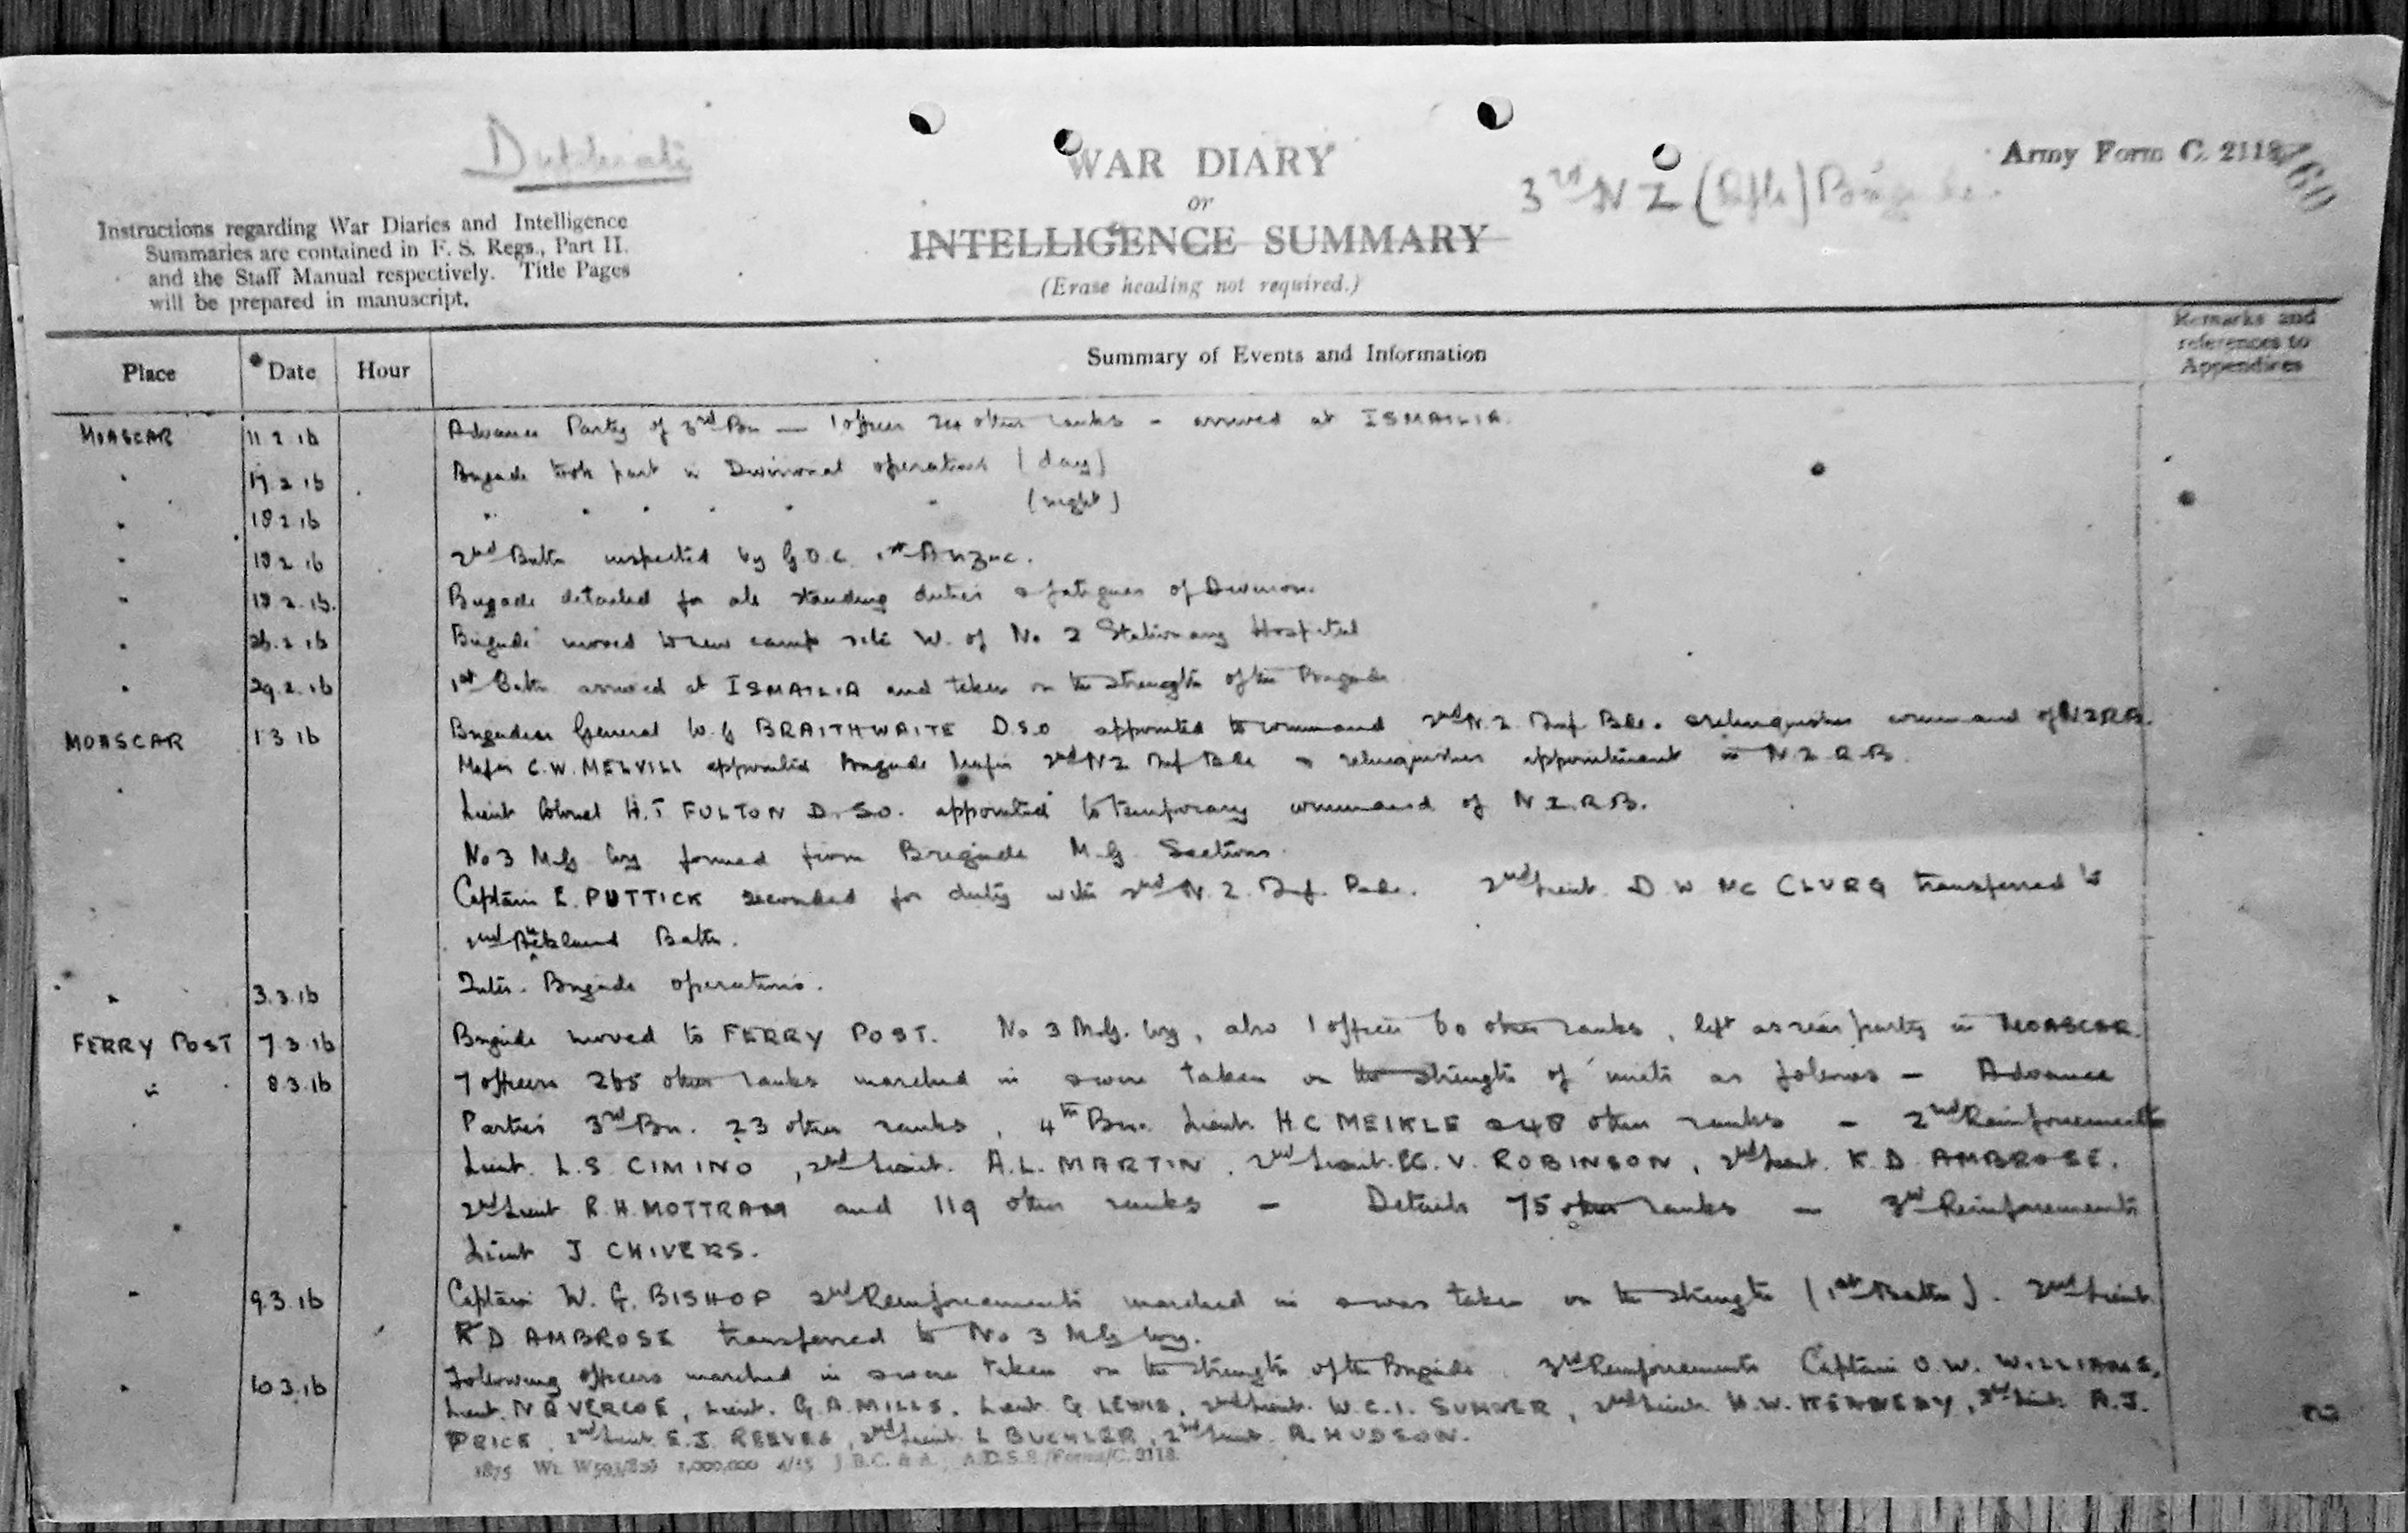 Duplicate
WAR DIARY
or
INTELLIGENCE SUMMARY
(Erase heading not required.)
3rd N Z (Rifle) Brigade.
Army Form C. 2118
Instructions regarding War Diaries and Intelligence
Summaries are contained in F. S. Regs., Part II.
and the Staff Manual respectively. Title Pages
will be prepared in manuscript.
Place Date Hour Summary of Events and Information Remarks and references to Appendices
MOASCAR 11 2 16 Advance Party of 3rd Bn — 1 officer 24 other ranks - arrived at ISMAILIA.
" 17.2.16 Brigade took part in Divisional operations (day)
" 18 2 16 " " " " " " (night)
" 18 2 16 2nd Battn inspected by G.O.C. 1st Anzac.
" 18 2 16. Brigade detailed for all standing duties & fatigues of Division.
" 26.2.16 Brigade moved to new camp site W. of No 2 Stationary Hospital
" 29.2.16 1st Battn arrived at ISMAILIA and taken on the strength of the Brigade
MOASCAR 1 3 16 Brigadier General W. G BRAITHWAITE D.S.O appointed to command 2nd N.Z. Inf Bde. & relinquishes command of NZRB.
Major C.W. MELVILL appointed Brigade Major 2nd NZ Inf Bde & relinquishes appointment in N.Z.R.B.
" Lieut Colonel H.T FULTON D.S.O. appointed to temporary command of N.Z.R.B.
No 3 M.G Coy formed from Brigade M.G. Sections.
Captain E. PUTTICK seconded for duty with 2nd N.Z. Inf. Bde. 2nd Lieut. D W MC CLURG transferred to
2nd Auckland Battn.
" 3.3.16 Inter-Brigade operations.
FERRY POST 7.3.16 Brigade moved to FERRY POST. No 3 M.G. Coy, also 1 officer 60 other ranks, left as rear party in MOASCAR.
" 8.3.16 7 officers 265 other ranks marched in & were taken on the strength of units as follows — Advance
Parties 3rd Bn. 23 other ranks, 4th Bn. Lieut. H C MEIKLE & 48 other ranks — 2nd Reinforcements
Lieut. L.S. CIMINO, 2nd Lieut. A.L. MARTIN, 2nd Lieut. V. ROBINSON, 2nd Lieut. K D AMBROSE,
2nd Lieut R.H. MOTTRAM and 119 other ranks — Details 75 other ranks — 3rd Reinforcements
Lieut J CHIVERS.
" 9.3.16 Captain W. G. BISHOP 2nd Reinforcements marched in & was taken on the strength (1st Battn). 2nd Lieut
K D AMBROSE transferred to No 3 M G Coy.
" 10.3.16 Following officers marched in & were taken on the strength of the Brigade. 3rd Reinforcements Captain O.W. WILLIAMS,
Lieut. N VERCOE, Lieut. G.A. MILLS, Lieut. G LEWIS, 2nd Lieut. W.C.I. SUMNER, 2nd Lieut H.W. KENNEDY, 2nd Lieut A.J.
PRICE, 2nd Lieut E.J. REEVES, 2nd Lieut L BUCHLER, 2nd Lieut A. HUDSON.
1875 Wt. W593/826 1,000,000 4/15 J.B.C. & A. A.D.S.S./Forms/C. 2118.